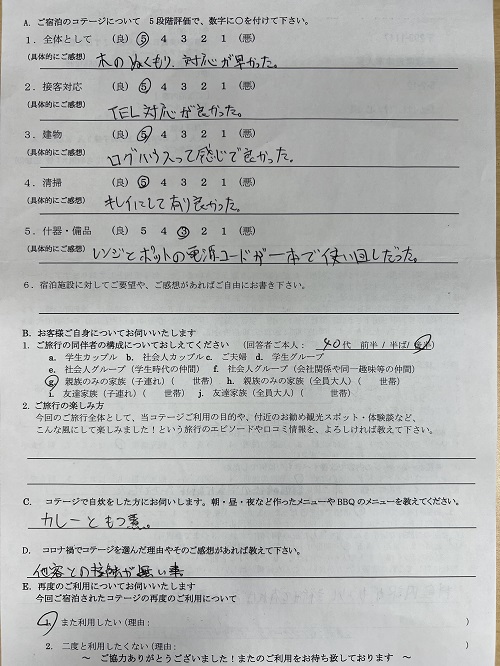 A. ご宿泊のコテージについて 5段階評価で、数字に○を付けて下さい。
1. 全体として (良) 5 4 3 2 1 (悪)
(具体的にご感想) 木のぬくもり、対応が早かった。
2. 接客対応 (良) 5 4 3 2 1 (悪)
(具体的にご感想) TEL対応が良かった。
3. 建物 (良) 5 4 3 2 1 (悪)
(具体的にご感想) ログハウスって感じで良かった。
4. 清掃 (良) 5 4 3 2 1 (悪)
(具体的にご感想) キレイにして有り良かった。
5. 什器・備品 (良) 5 4 3 2 1 (悪)
(具体的にご感想) レンジとポットの電源コードが一本で使い回しだった。
6. 宿泊施設に対してご要望や、ご感想があればご自由にお書き下さい。
B. お客様ご自身についてお伺いいたします
1. ご旅行の同伴者の構成についておしえてください (回答者ご本人: 40代 前半/半ば/後半)
a. 学生カップル b. 社会人カップル c. ご夫婦 d. 学生グループ
e. 社会人グループ(学生時代の仲間) f. 社会人グループ(会社関係や同一趣味等の仲間)
g. 親族のみの家族(子連れ)( 世帯) h. 親族のみの家族(全員大人)( 世帯)
i. 友達家族(子連れ)( 世帯) j. 友達家族(全員大人)( 世帯)
2. ご旅行の楽しみ方
今回のご旅行全体として、当コテージご利用の目的や、付近のお勧め観光スポット・体験談など、
こんな風にして楽しみました!という旅行のエピソードや口コミ情報を、よろしければ教えて下さい。
C. コテージで自炊をした方にお伺いします。朝・昼・夜など作ったメニューやBBQのメニューを教えてください。
カレーともつ煮。
D. コロナ禍でコテージを選んだ理由やそのご感想があれば教えて下さい。
他客との接触が無い事
E. 再度のご利用についてお伺いいたします
今回ご宿泊されたコテージの再度のご利用について
1. また利用したい(理由: )
2. 二度と利用したくない(理由: )
~ ご協力ありがとうございました!またのご利用をお待ち致しております ~